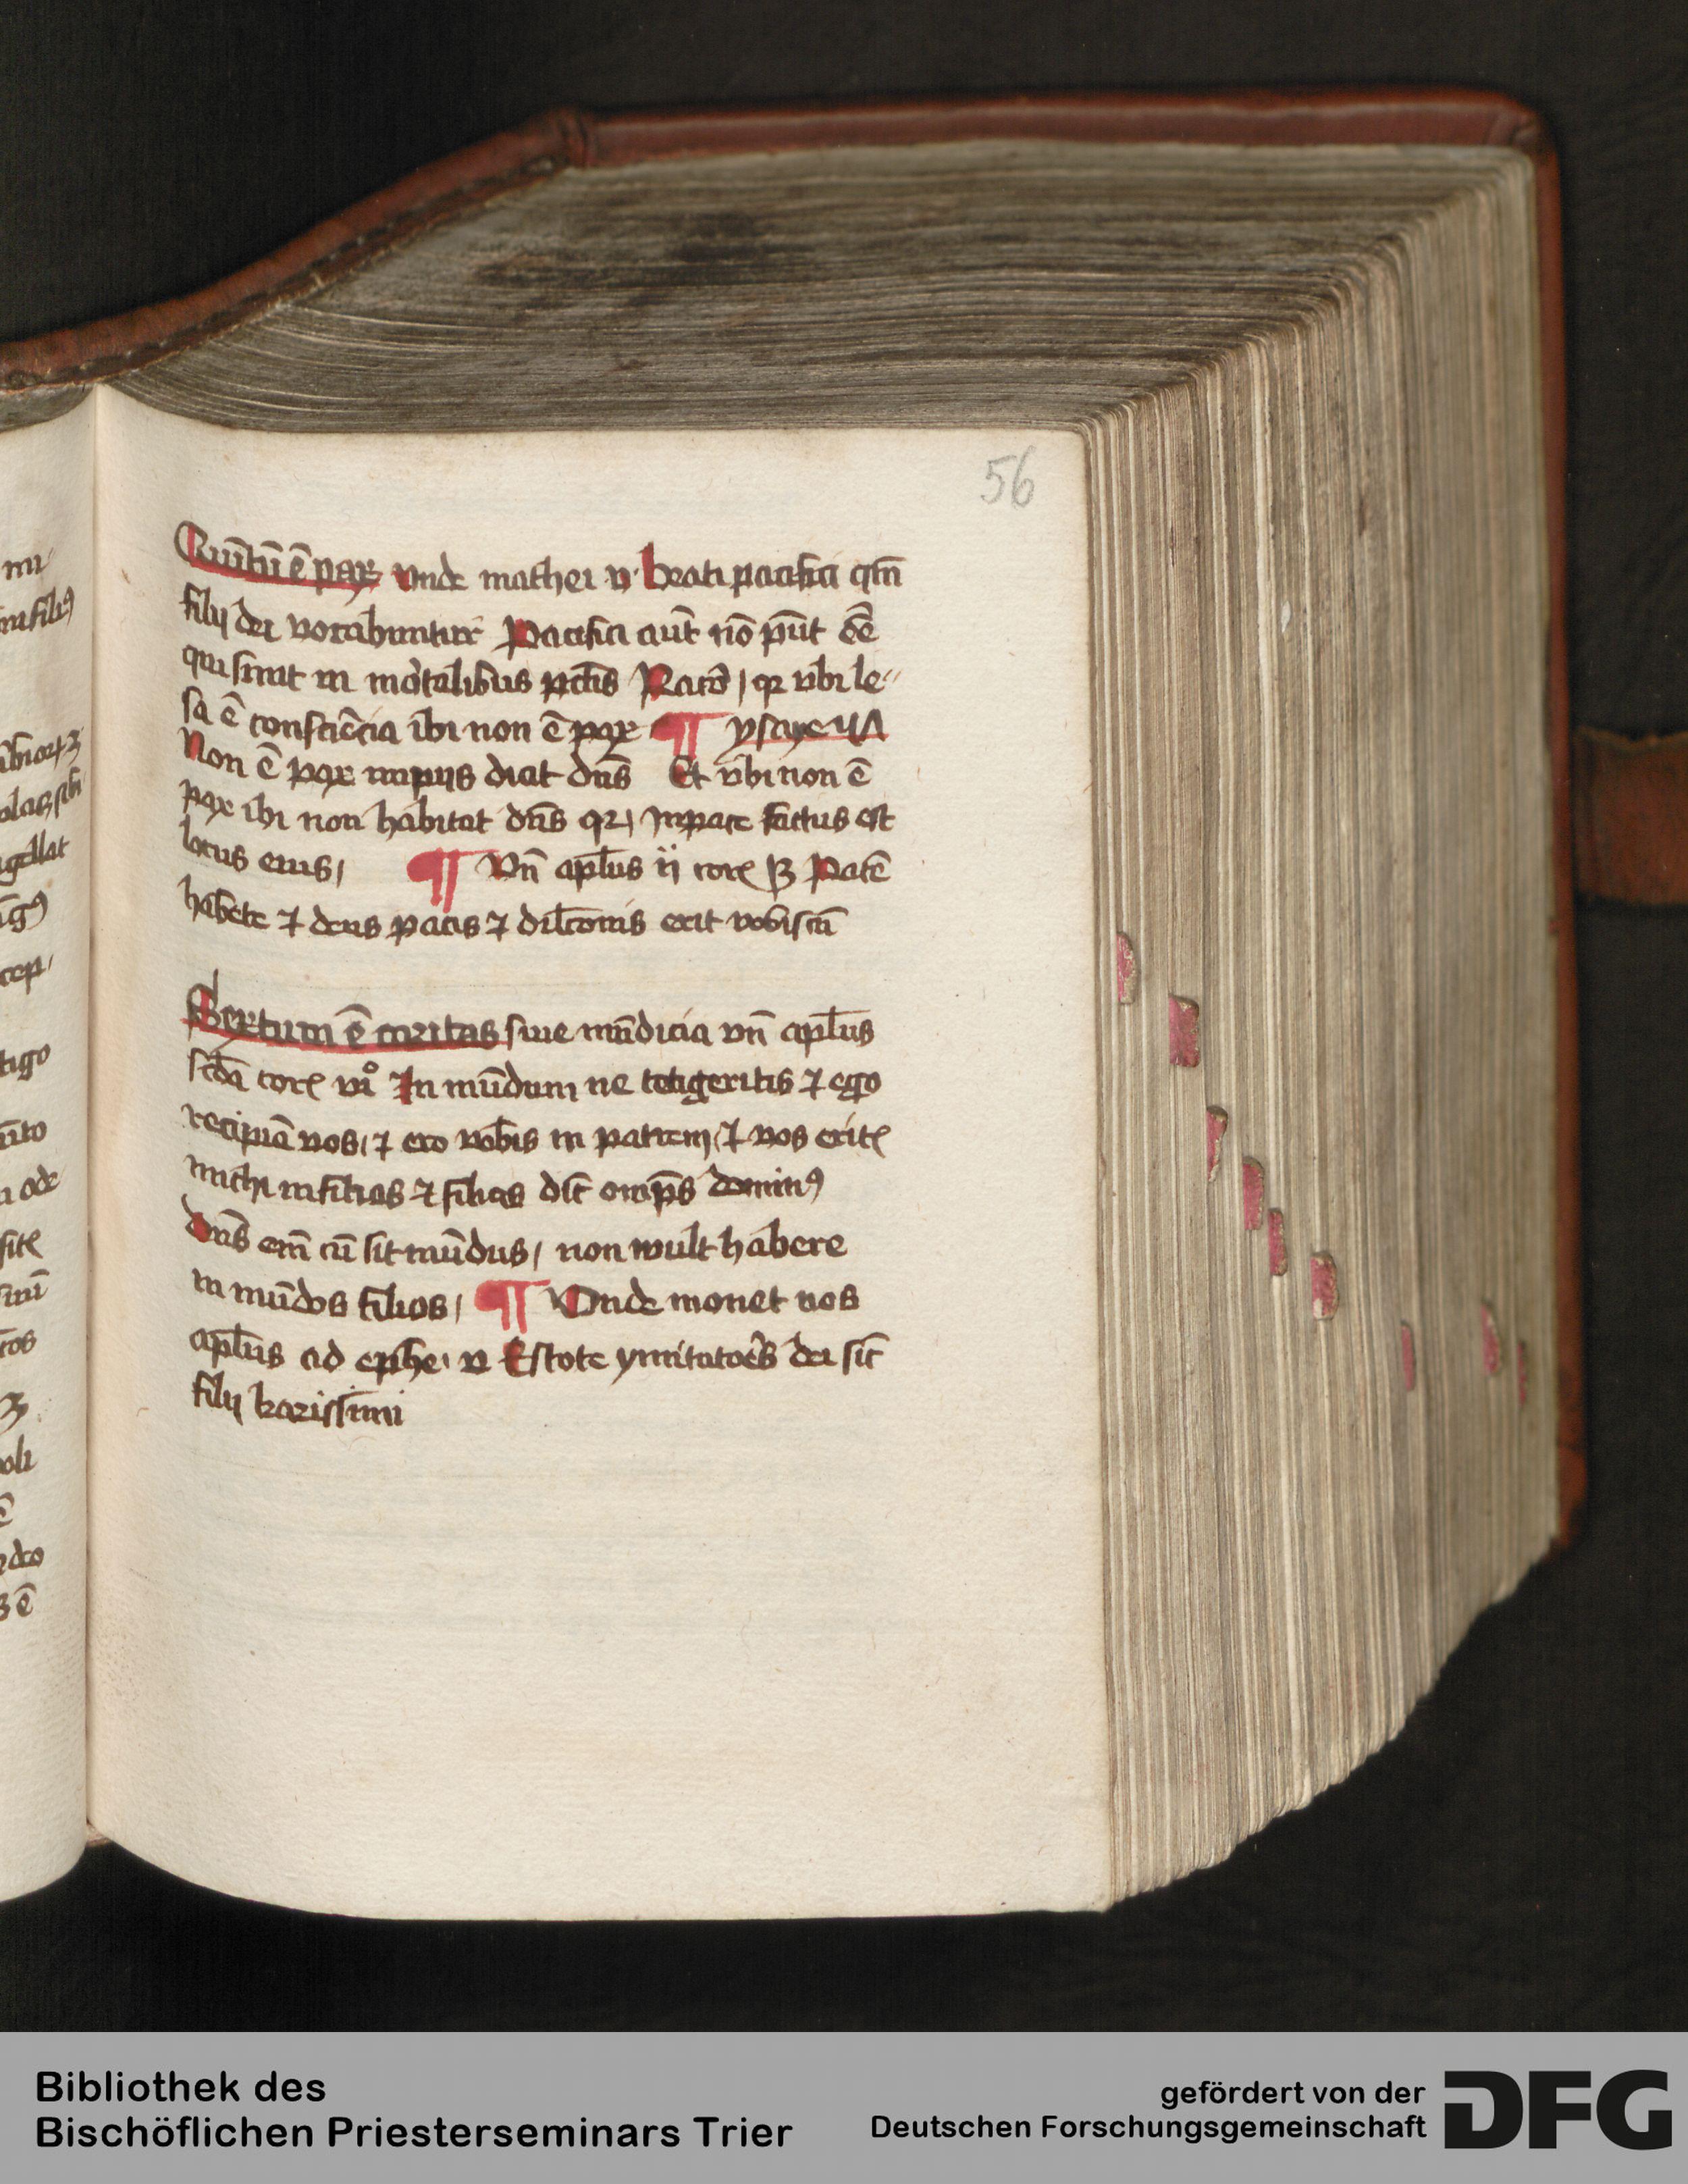 56
Quītū ē pax vnde mathei v beati pacifici qm̄
filij dei vocabuntur Pacifici aūt nō pn̄t ēē
qui sunt in mortalibus pctīs Racō / qz vbi le
sa ē consciēcia ibi non ē pax ¶ ysaye
Non ē pax impijs dicit dn̄s Et vbi non ē
pax ibi non habitat dn̄s qz / Inpace factus est
locus eius / ¶ Vn̄ apl̄us ij cor Pacē
habete ⁊ deus pacis ⁊ dilc̄onis erit vobiscū
Sextum ē castitas siue mūdicia vn̄ apl̄us
scd̄a cor vi° In mūdum ne tetigeritis ⁊ ego
recipiā vos / ⁊ ero vobis in patrem / ⁊ vos eritis
michi in filios ⁊ filias dic̄t omp̄s dominꝰ
dn̄s em̄ cū sit mūdus / non wult habere
in mūdos filios / ¶ Vnde monet nos
apl̄us ad ephe v Estote ymitatores dei sic̄
filij karissimi
mi
in filiꝰ
gellat
cep
tigo
a ode
Bibliothek des
Bischöflichen Priesterseminars Trier
gefördert von der
Deutschen Forschungsgemeinschaft
DFG